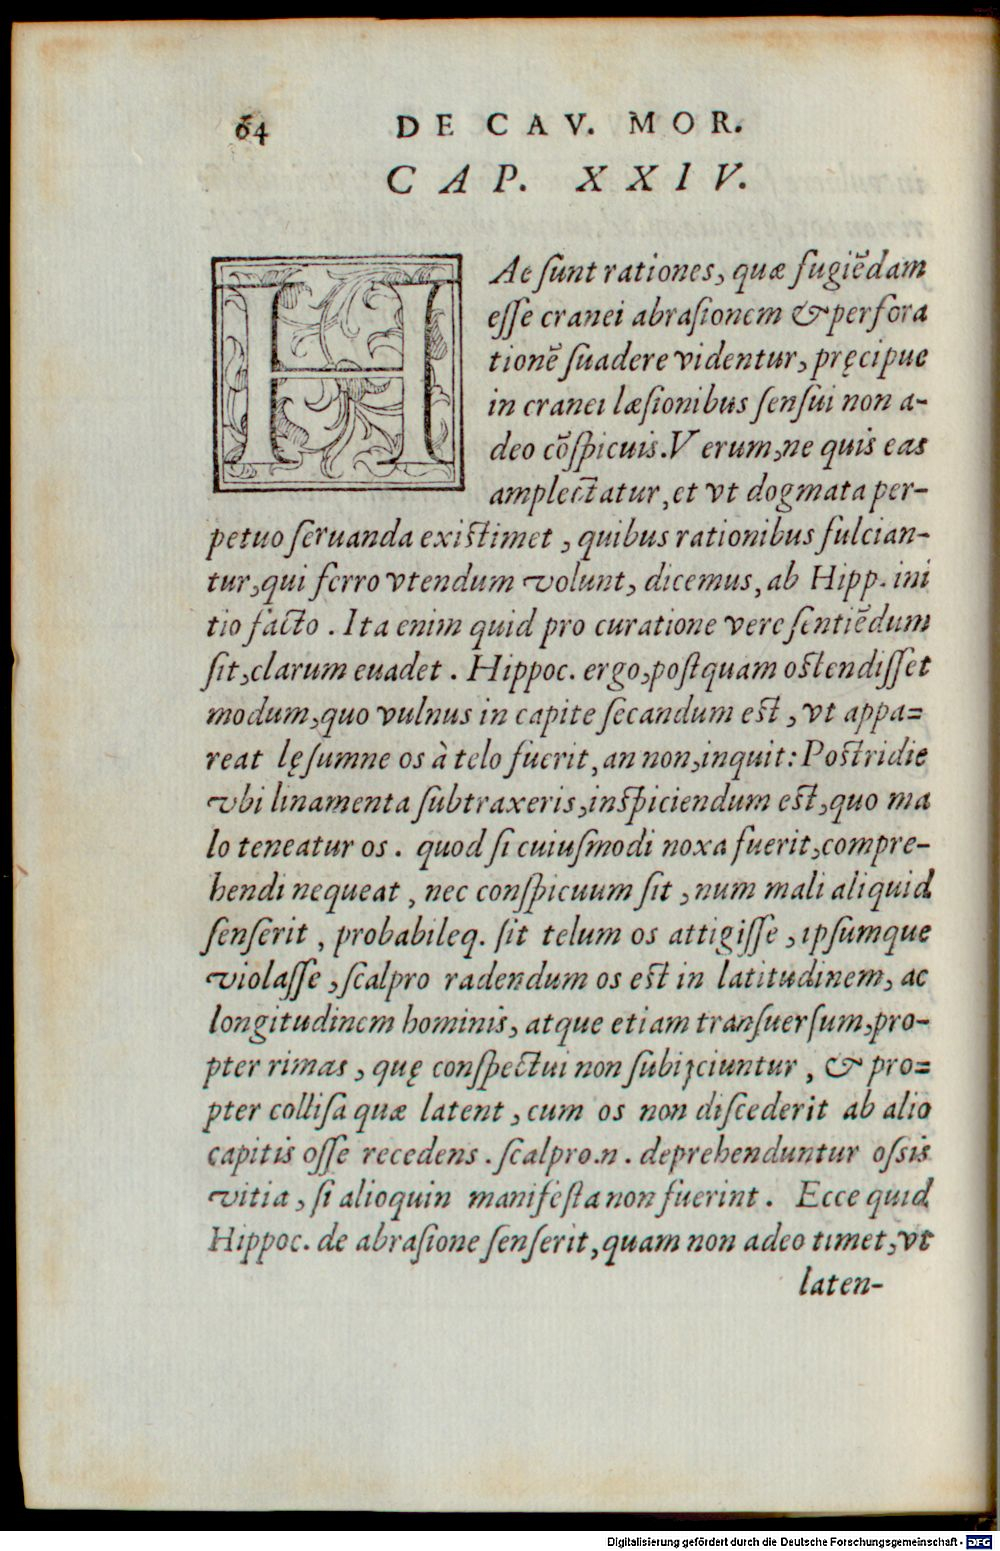 64 DE CAV. MOR.
CAP. XXIV.
HAe ſunt rationes, quæ fugiẽdam
eſſe cranei abraſionem & perfora
tionẽ ſuadere videntur, pręcipue
in cranei læſionibus ſenſui non a-
deo cõſpicuis. Verum, ne quis eas
amplectatur, et vt dogmata per-
petuo ſeruanda existimet, quibus rationibus fulcian-
tur, qui ferro vtendum volunt, dicemus, ab Hipp. ini
tio facto. Ita enim quid pro curatione vere ſentiẽdum
ſit, clarum euadet. Hippoc. ergo, poſtquam ostendiſſet
modum, quo vulnus in capite ſecandum est, vt appa=
reat lęſumne os à telo fuerit, an non, inquit: Postridie
vbi linamenta ſubtraxeris, inſpiciendum est, quo ma
lo teneatur os. quod ſi cuiuſmodi noxa fuerit, compre-
hendi nequeat, nec conſpicuum ſit, num mali aliquid
ſenſerit, probabileq. ſit telum os attigiſſe, ipſumque
violaſſe, ſcalpro radendum os est in latitudinem, ac
longitudinem hominis, atque etiam tranſuerſum, pro-
pter rimas, quę conſpectui non ſubijciuntur, & pro=
pter colliſa quæ latent, cum os non diſcederit ab alio
capitis oſſe recedens. ſcalpro.n. deprehenduntur oſsis
vitia, ſi alioquin manifeſta non fuerint. Ecce quid
Hippoc. de abraſione ſenſerit, quam non adeo timet, vt
laten-
Digitalisierung gefördert durch die Deutsche Forschungsgemeinschaft - DFG